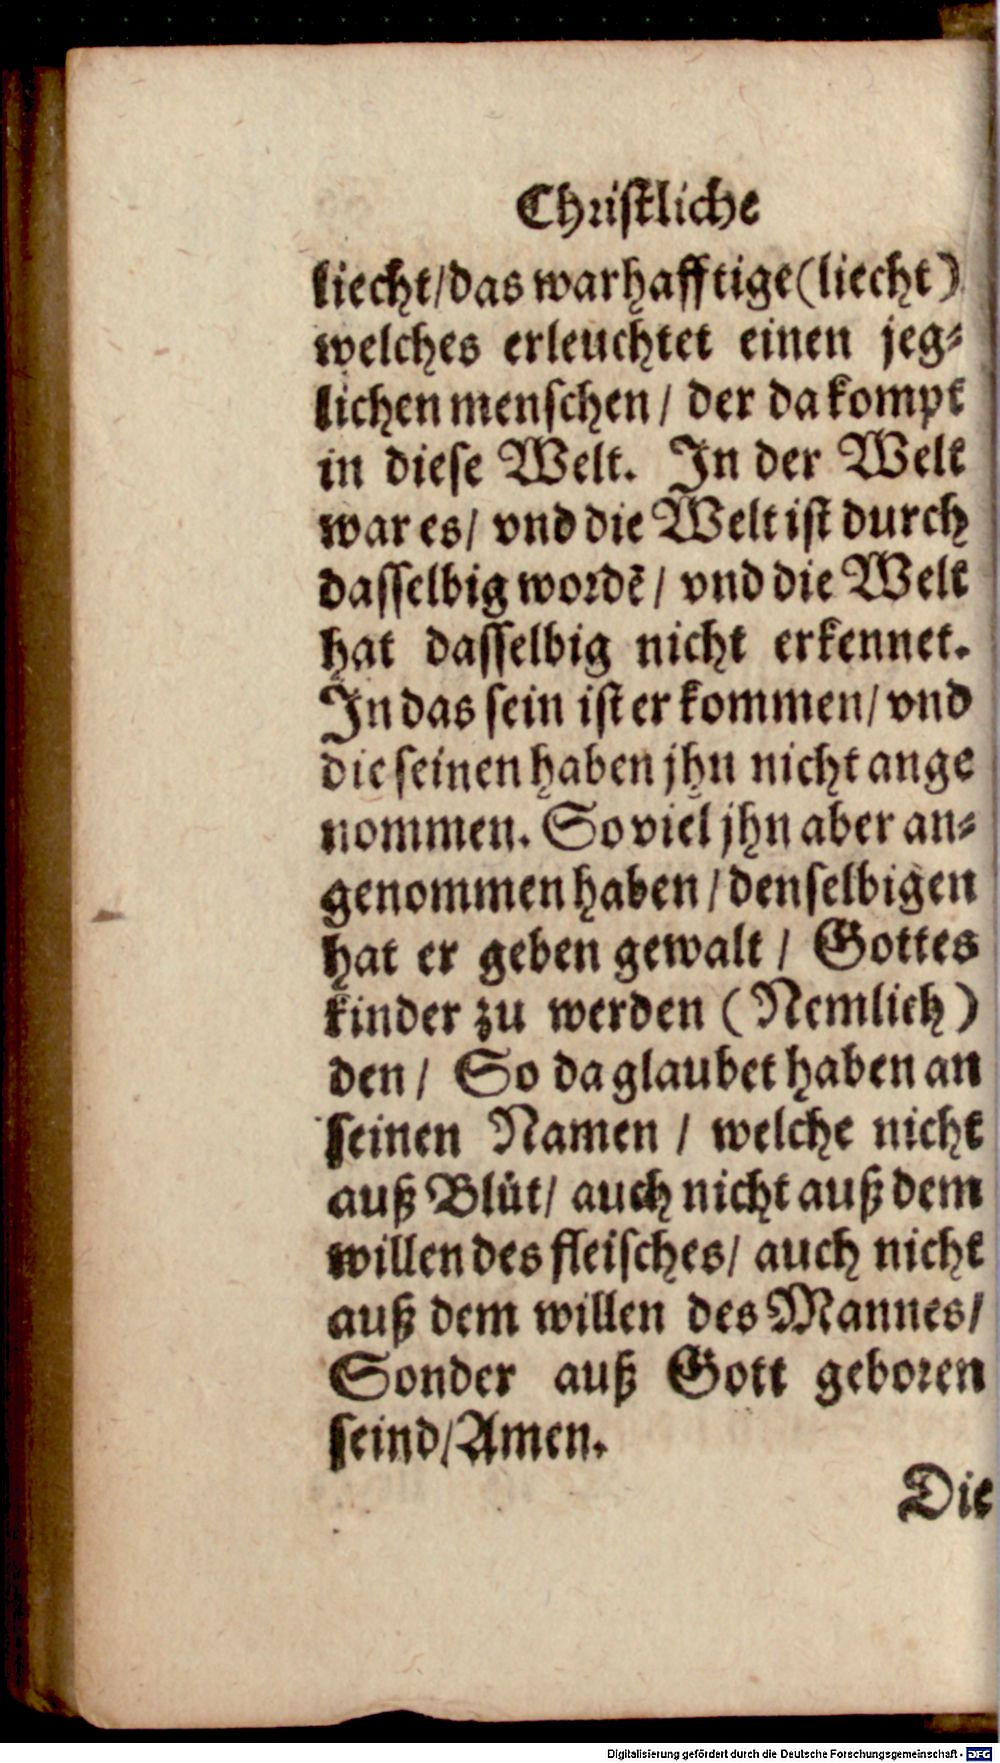 Christliche
liecht/das warhafftige(liecht)
welches erleuchtet einen jeg-
lichen menschen / der da kompt
in diese Welt. In der Welt
war es/ vnd die Welt ist durch
dasselbig wordẽ/ vnd die Welt
hat dasselbig nicht erkennet.
In das sein ist er kommen/ vnd
die seinen haben jhn nicht ange
nommen. So viel jhn aber an-
genommen haben / denselbigen
hat er geben gewalt / Gottes
kinder zu werden (Nemlich)
den / So da glaubet haben an
seinen Namen / welche nicht
auß Blůt/ auch nicht auß dem
willen des fleisches/ auch nicht
auß dem willen des Mannes/
Sonder auß Gott geboren
seind/Amen.
Die
Digitalisierung gefördert durch die Deutsche Forschungsgemeinschaft - DFG